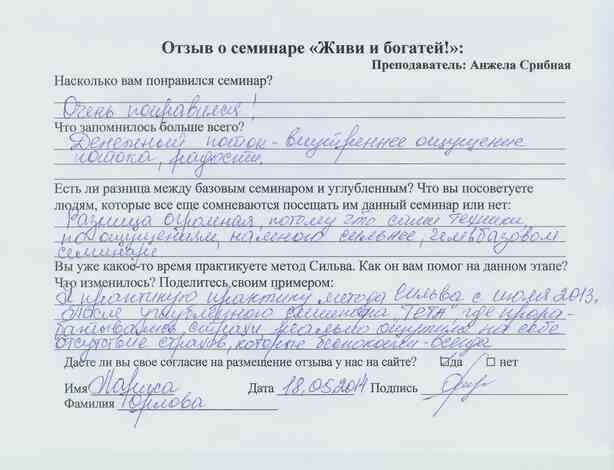 Отзыв о семинаре «Живи и богатей!»:
Преподаватель: Анжела Срибная
Насколько вам понравился семинар?
Очень понравился!
Что запомнилось больше всего?
Денежный поток - внутреннее ощущение
потока, радости.
Есть ли разница между базовым семинаром и углубленным? Что вы посоветуете
людям, которые все еще сомневаются посещать им данный семинар или нет:
Разница огромная, потому что сами техники,
по ощущениям, намного сильнее, чем в базовом
семинаре
Вы уже какое-то время практикуете метод Сильва. Как он вам помог на данном этапе?
Что изменилось? Поделитесь своим примером:
Я практикую практику метода Сильва с июля 2013,
после углубленного семинара ТЕТА, где прора-
батывались страхи реально ощутила на себе
отсутствие страхов, которые беспокоили
Даете ли вы свое согласие на размещение отзыва у нас на сайте? ☑да ☐ нет
Имя Лариса Дата 18.05.2014 Подпись
Фамилия Юрлова